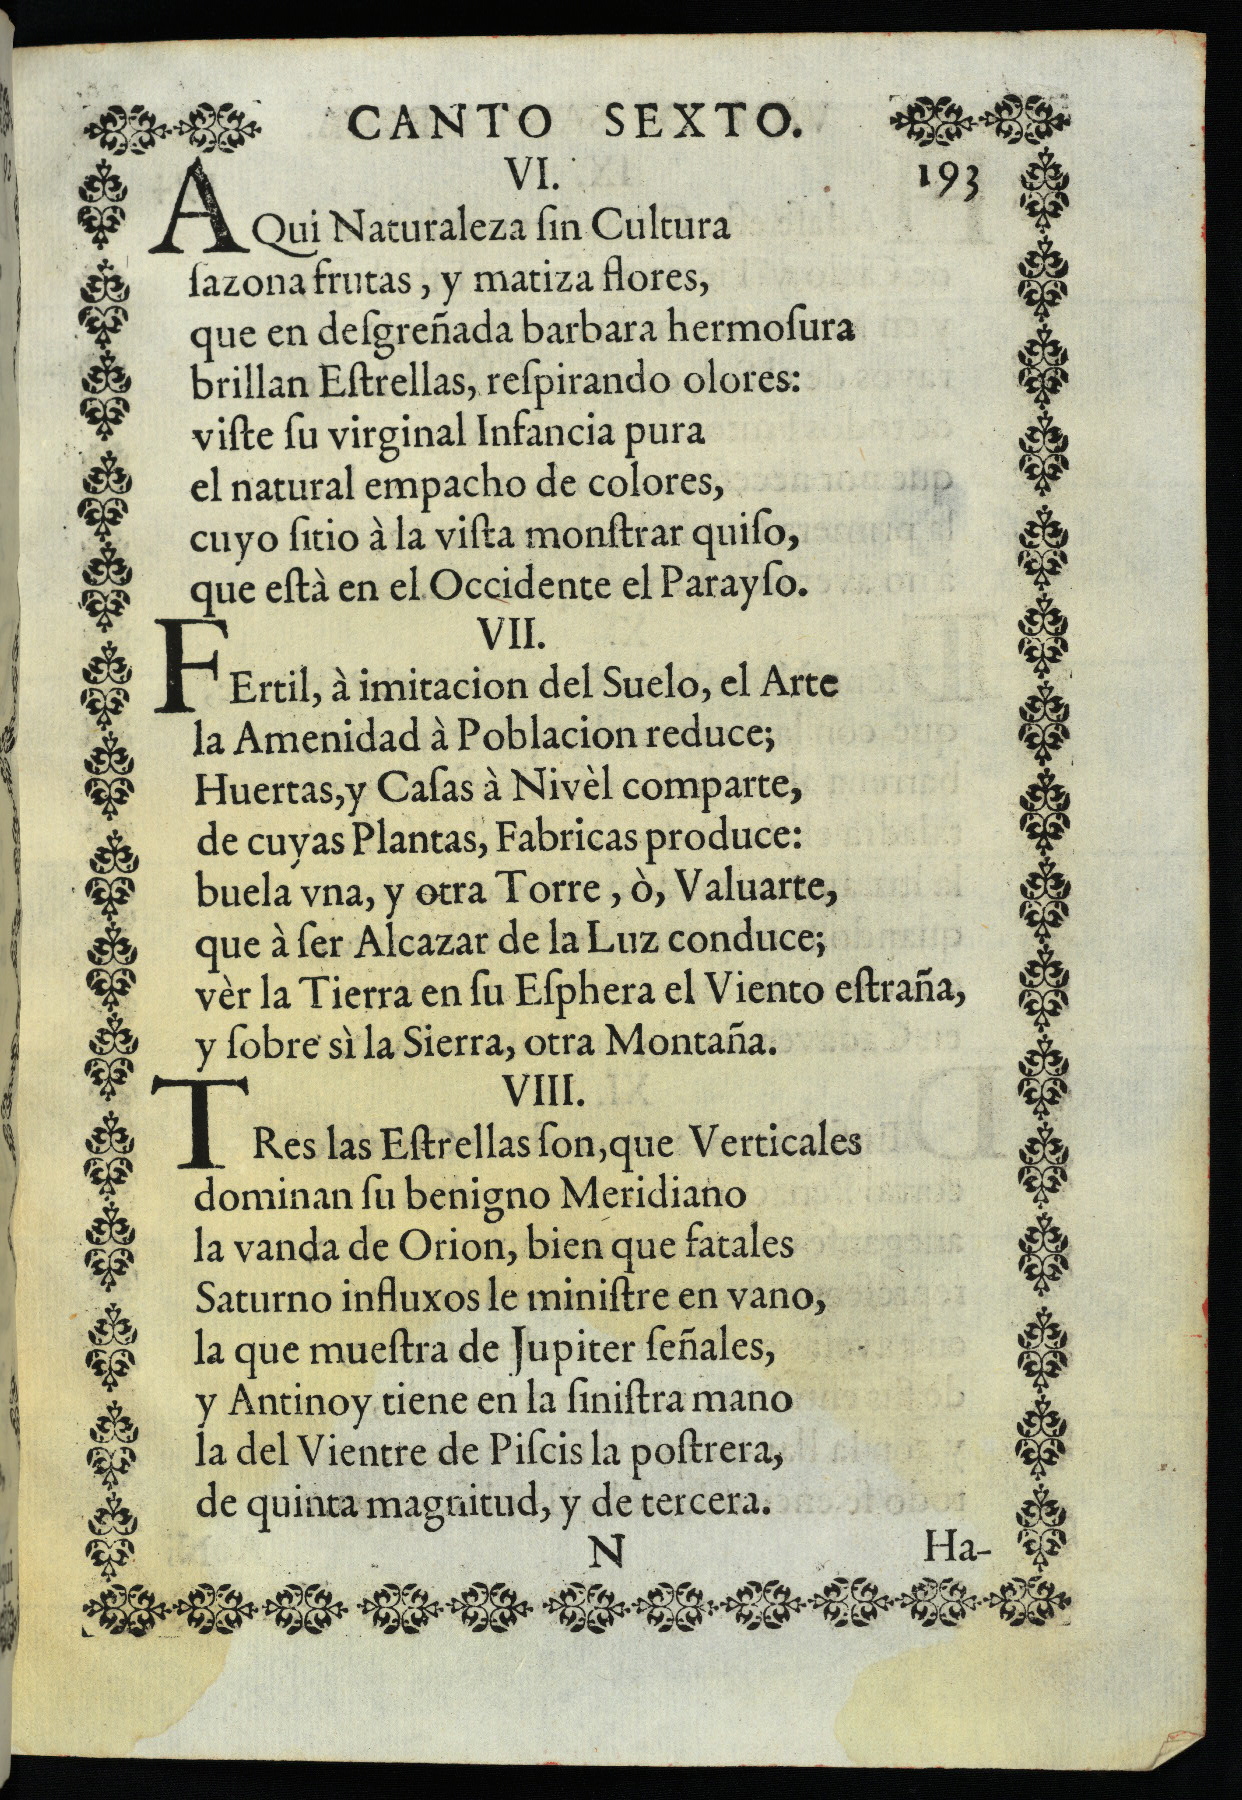 CANTO SEXTO.
VI. 193
AQui Naturaleza ſin Cultura
ſazona frutas, y matiza flores,
que en deſgreñada barbara hermoſura
brillan Eſtrellas, reſpirando olores:
viſte ſu virginal Infancia pura
el natural empacho de colores,
cuyo ſitio à la viſta monſtrar quiſo,
que eſtà en el Occidente el Parayſo.
VII.
FErtil, à imitacion del Suelo, el Arte
la Amenidad à Poblacion reduce;
Huertas,y Caſas à Nivèl comparte,
de cuyas Plantas, Fabricas produce:
buela vna, y otra Torre, ò, Valuarte,
que à ſer Alcazar de la Luz conduce;
vèr la Tierra en ſu Eſphera el Viento eſtraña,
y ſobre sì la Sierra, otra Montaña.
VIII.
TRes las Eſtrellas ſon,que Verticales
dominan ſu benigno Meridiano
la vanda de Orion, bien que fatales
Saturno influxos le miniſtre en vano,
la que mueſtra de Jupiter ſeñales,
y Antinoy tiene en la ſiniſtra mano
la del Vientre de Piſcis la poſtrera,
de quinta magnitud, y de tercera.
N Ha-